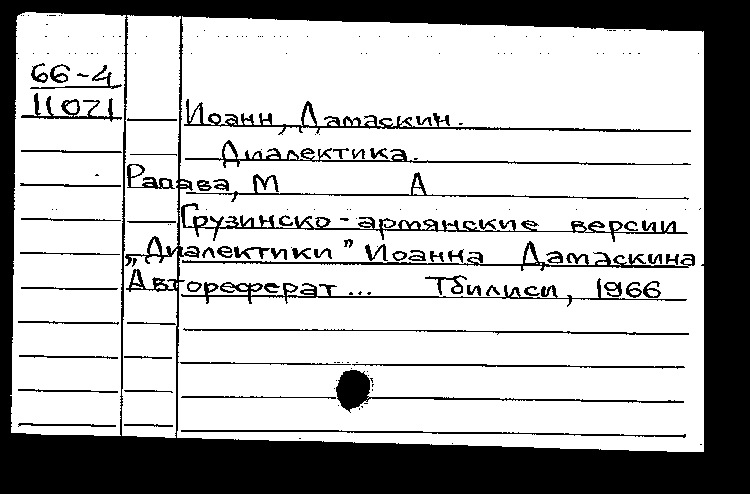 66-4
11071
Иоанн, Дамаскин.
Диалектика.
Рапава, М А
Грузинско-армянские версии
„Диалектики" Иоанна Дамаскина.
Автореферат... Тбилиси, 1966